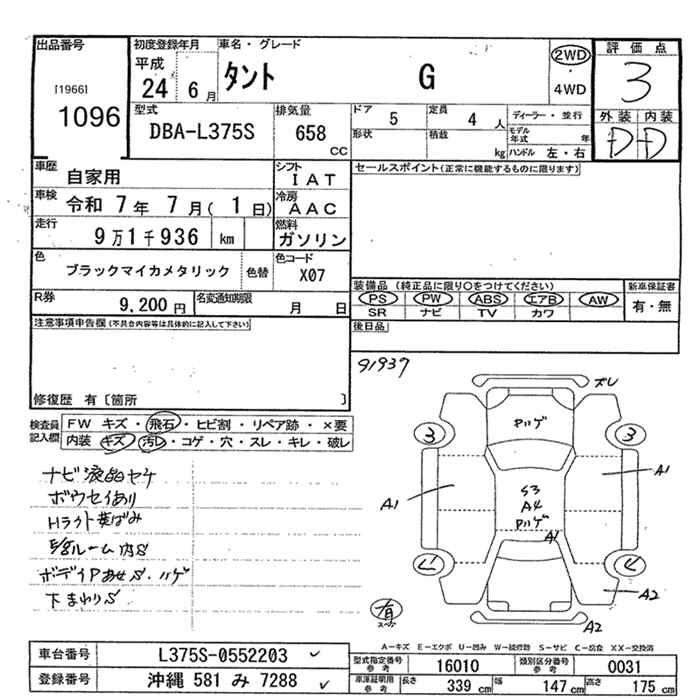 出品番号
[1966]
1096
初度登録年月
平成
24 6月
車名・グレード
タント G
2WD
4WD
評価点
3
外装 内装
D D
型式
DBA-L375S
排気量
658
CC
ドア 5
定員 4 人
ディーラー・並行
形状
積載 kg
モデル年式 年
ハンドル 左・右
車歴
自家用
シフト
IAT
セールスポイント(正常に機能するものに限ります)
車検
令和 7年 7月( 1日)
冷房
AAC
走行
9万1千936 km
燃料
ガソリン
色
ブラックマイカメタリック
色替
色コード
X07
装備品 (純正品に限り○をつけてください)
新車保証書
PS PW ABS エアB AW
有・無
SR ナビ TV カワ
R券
9,200円
名変通知期限
月 日
後日品
注意事項申告欄(不具合内容等は具体的に記入して下さい)
修復歴 有〔箇所 〕
91937
検査員
記入欄
FW キズ・飛石・ヒビ割・リペア跡・×要
内装 キズ・汚レ・コゲ・穴・スレ・キレ・破レ
ナビ液晶ヤケ
ボウセイあり
Hライト黄ばみ
ルーム内S
ボディ S・ハゲ
下まわりS
ズレ
Pハゲ
3 3
A1 A1
S3
A4
Pハゲ
A1
A2
有
A2
A-キズ E-エクボ U-凹み W-板修跡 S-サビ C-腐食 XX-交換済
車台番号
L375S-0552203
登録番号
沖縄 581 み 7288
型式指定番号
参考
16010
類別区分番号
参考
0031
車庫証明用
参考
長さ 339 cm
幅 147 cm
高さ 175 cm